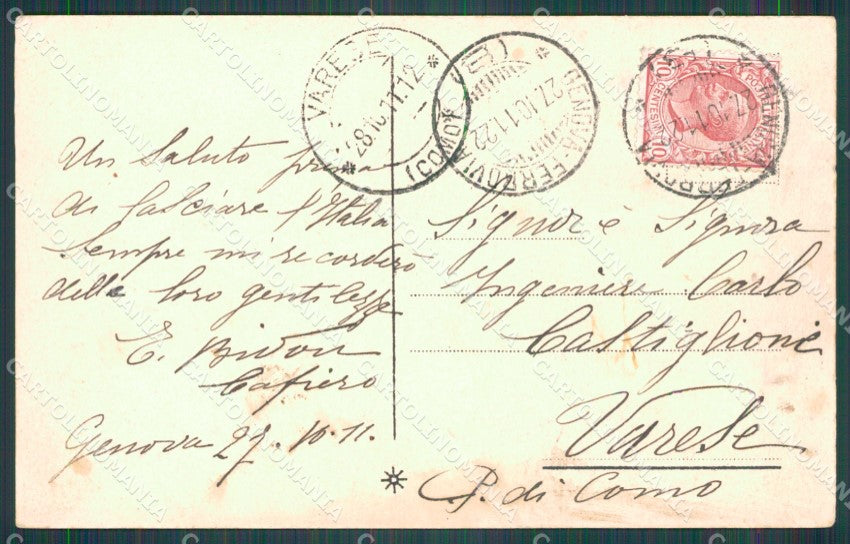 VARESE
(COMO)
28.10.11.12
GENOVA-FERROVIA
27.10.11.22
10 CENTESIMI 10
Un Saluto prima
di lasciare l'Italia
Sempre mi recorderò
delle loro gentilezze
E.
Cafiero
Genova 27.10.11.
Signor è Signora
Ingeniere Carlo
Castiglioni
Varese
P. di Como
CARTOLINOMANIA